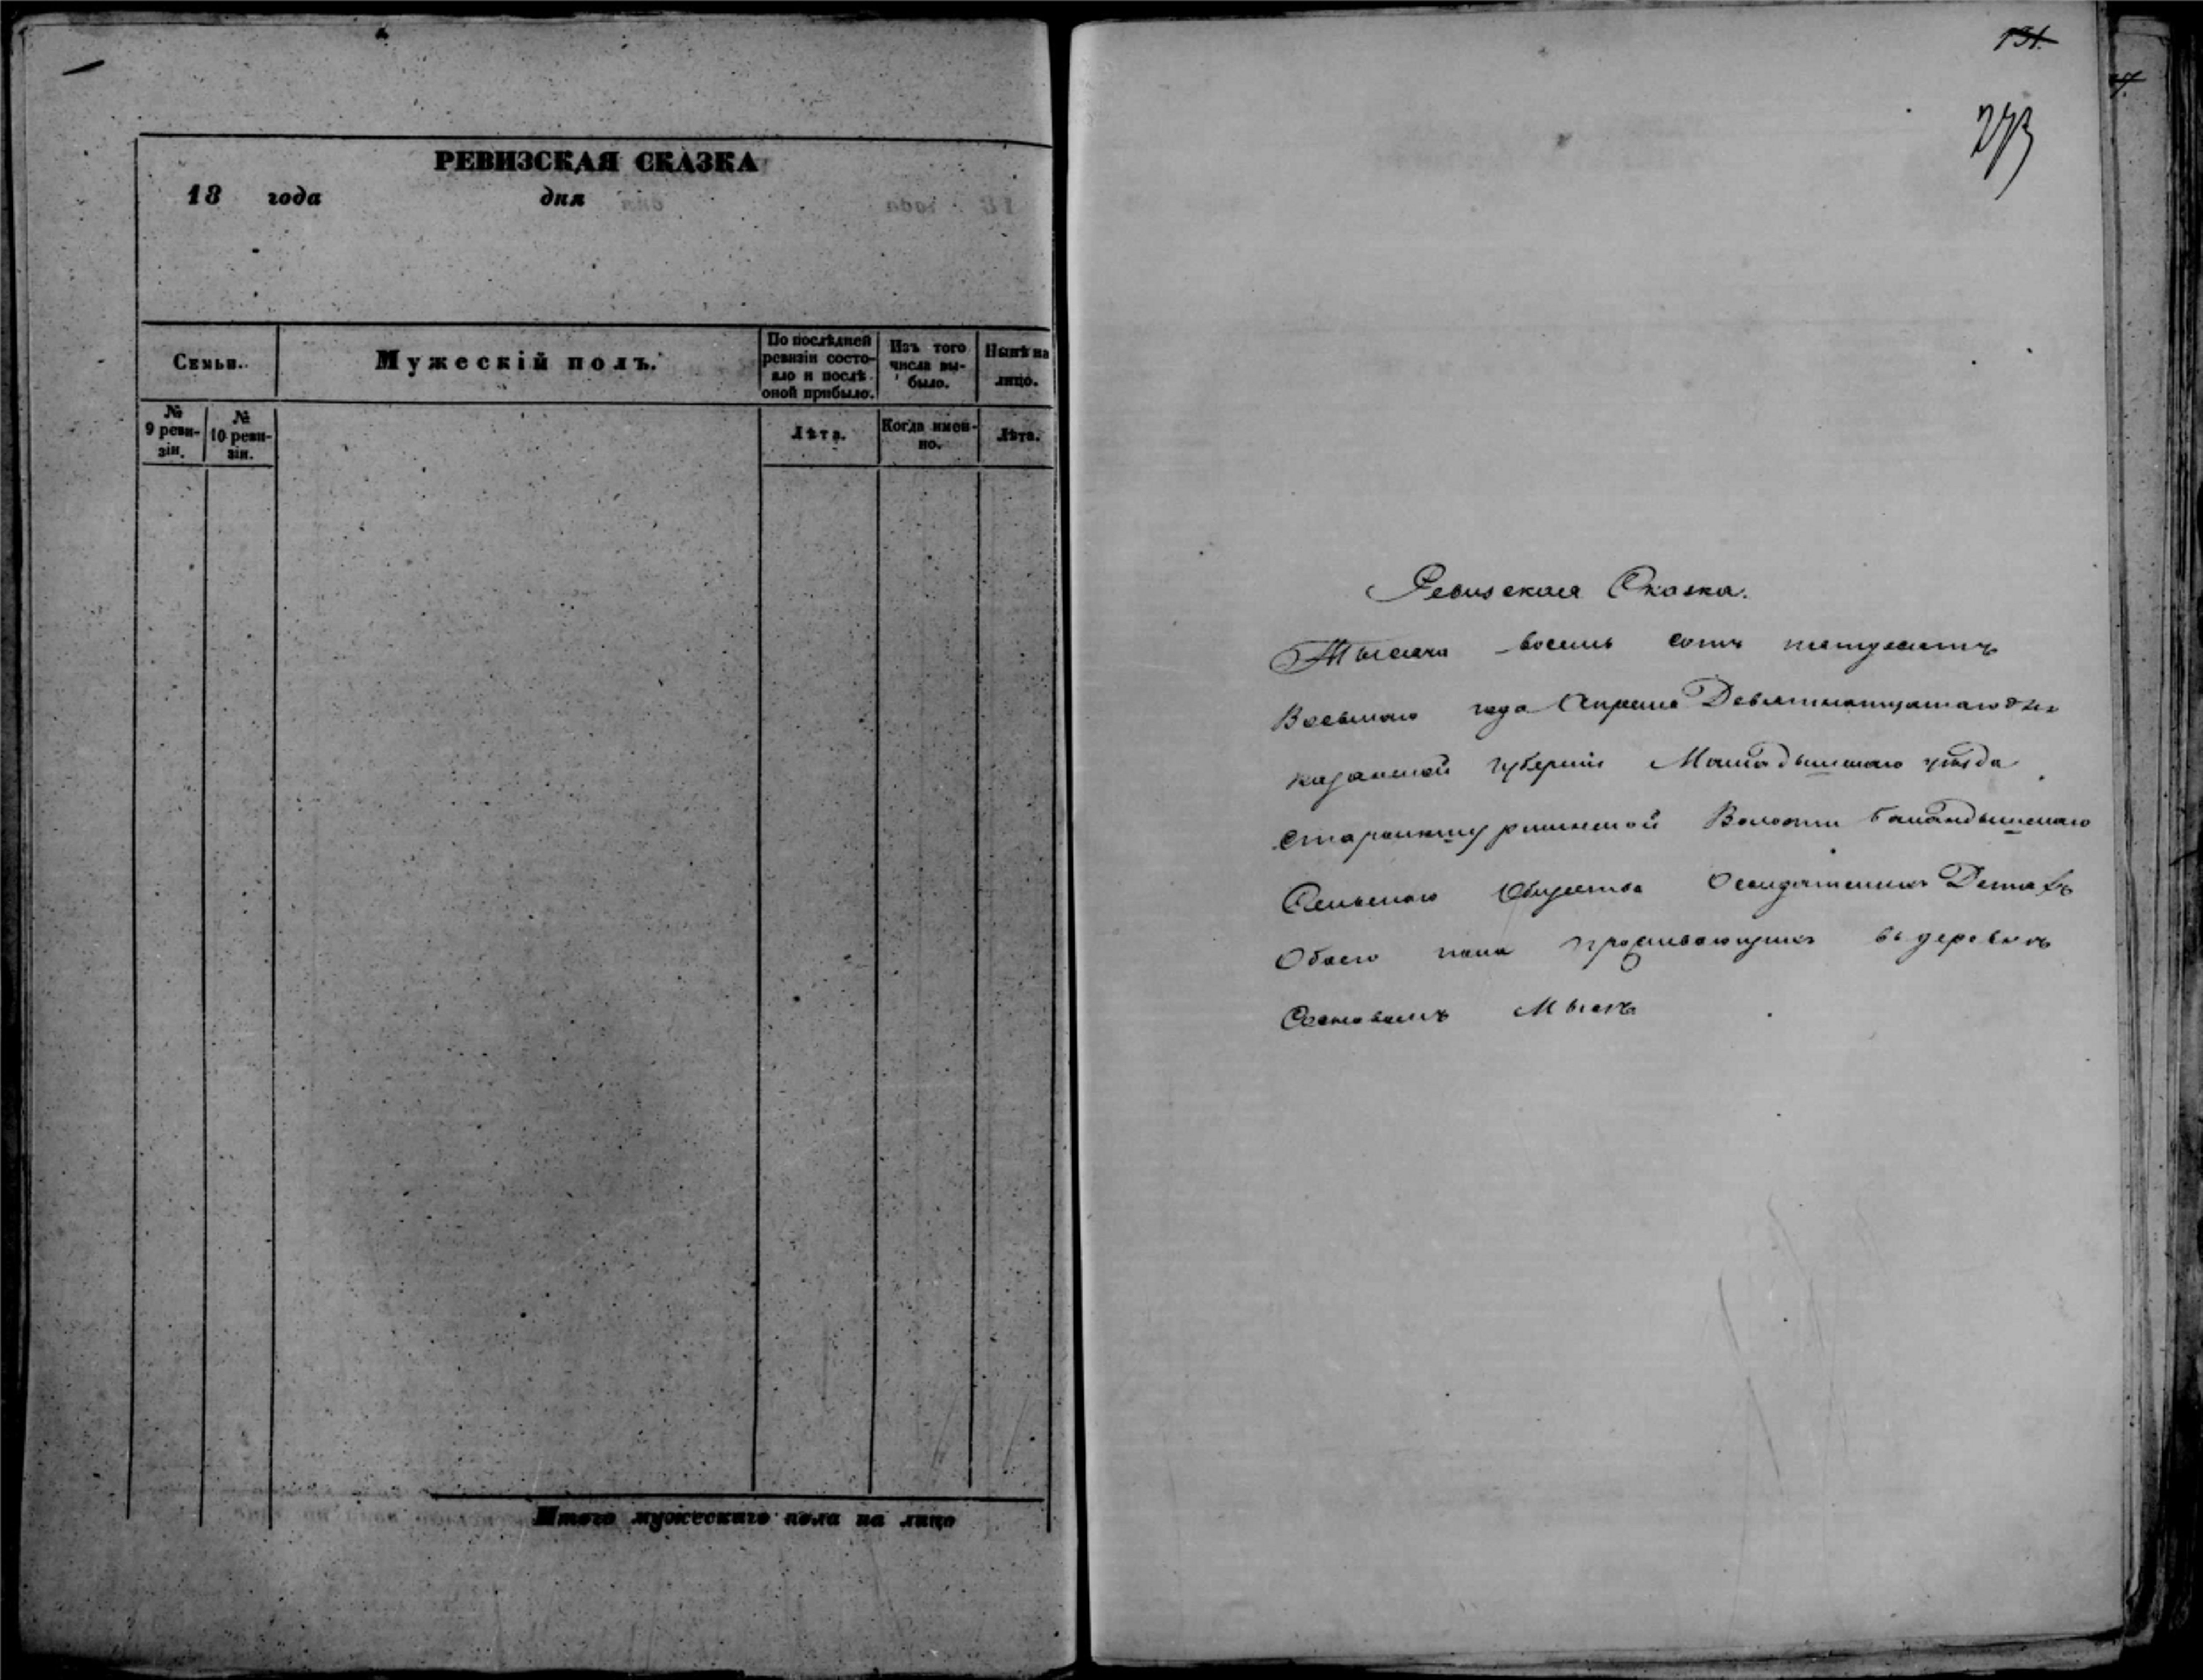 РЕВИЗСКАЯ СКАЗКА
18 года дня
Семьи.
Мужескій полъ.
По послѣдней ревизіи состояло и послѣ оной прибыло.
Изъ того числа выбыло.
Нынѣ на лицо.
№ 9 ревизіи.
№ 10 ревизіи.
Лѣта.
Когда именно.
Лѣта.
Итого мужескаго пола на лицо
131.
273
Ревизская Сказка.
Тысяча восемь сотъ пятдесятъ
Восьмаго года Апреля Девятнатцатаго дня
казанской губерніи Мамадышскаго уѣзда
Волости
Сельскаго Общества Солдатскихъ Детяхъ
Обоего пола проживающихъ въ деревнѣ
Сосновомъ Мысѣ